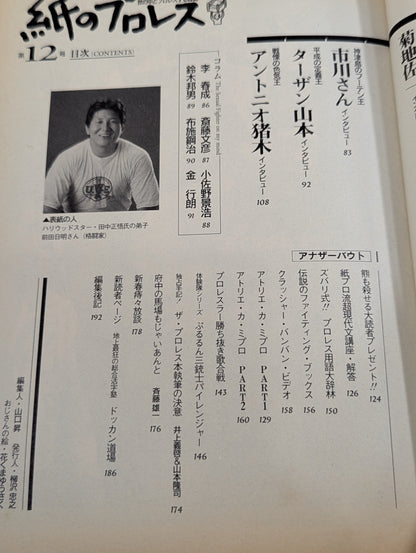 紙のプロレス
第12号 目次[CONTENTS]
菊地佐
神津島のプーチン王
市川さん インタビュー 83
平成の定義王
ターザン山本 インタビュー 92
戦慄の色気王
アントニオ猪木 インタビュー 108
コラム The Sexual Fighter on my mind
李 春成 86
斎藤文彦 87
小佐野景浩 88
鈴木邦男 89
布施鋼治 90
金 行朗 91
▲表紙の人
ハリウッドスター・田中正悟氏の弟子
前田日明さん(格闘家)
アナザーバウト
熊も殺せる大読者プレゼント!! 124
紙プロ流超現代文講座・解答 126
ズバリ式!! プロレス用語大辞林 150
伝説のファイティング・ブックス 156
クラッシャー・バンバン・ビデオ 158
アトリエ・カ・ミプロ PART1 129
アトリエ・カ・ミプロ PART2 160
プロレスラー勝ち抜き歌合戦 143
体験隊シリーズ ぷるるん三銃士バイレンジャー 146
独占手記! ザ・プロレス本執筆の決意 井上義啓&山本隆司 174
府中の馬場もじゃいあんと 斎藤雄一 176
新春痔々放談 178
新読者ページ 地上最狂の総合活字塾 ドッカン道場 186
編集後記 192
編集人・山口昇 発行人・柳沢忠之
おじさんの絵・花くまゆうさく